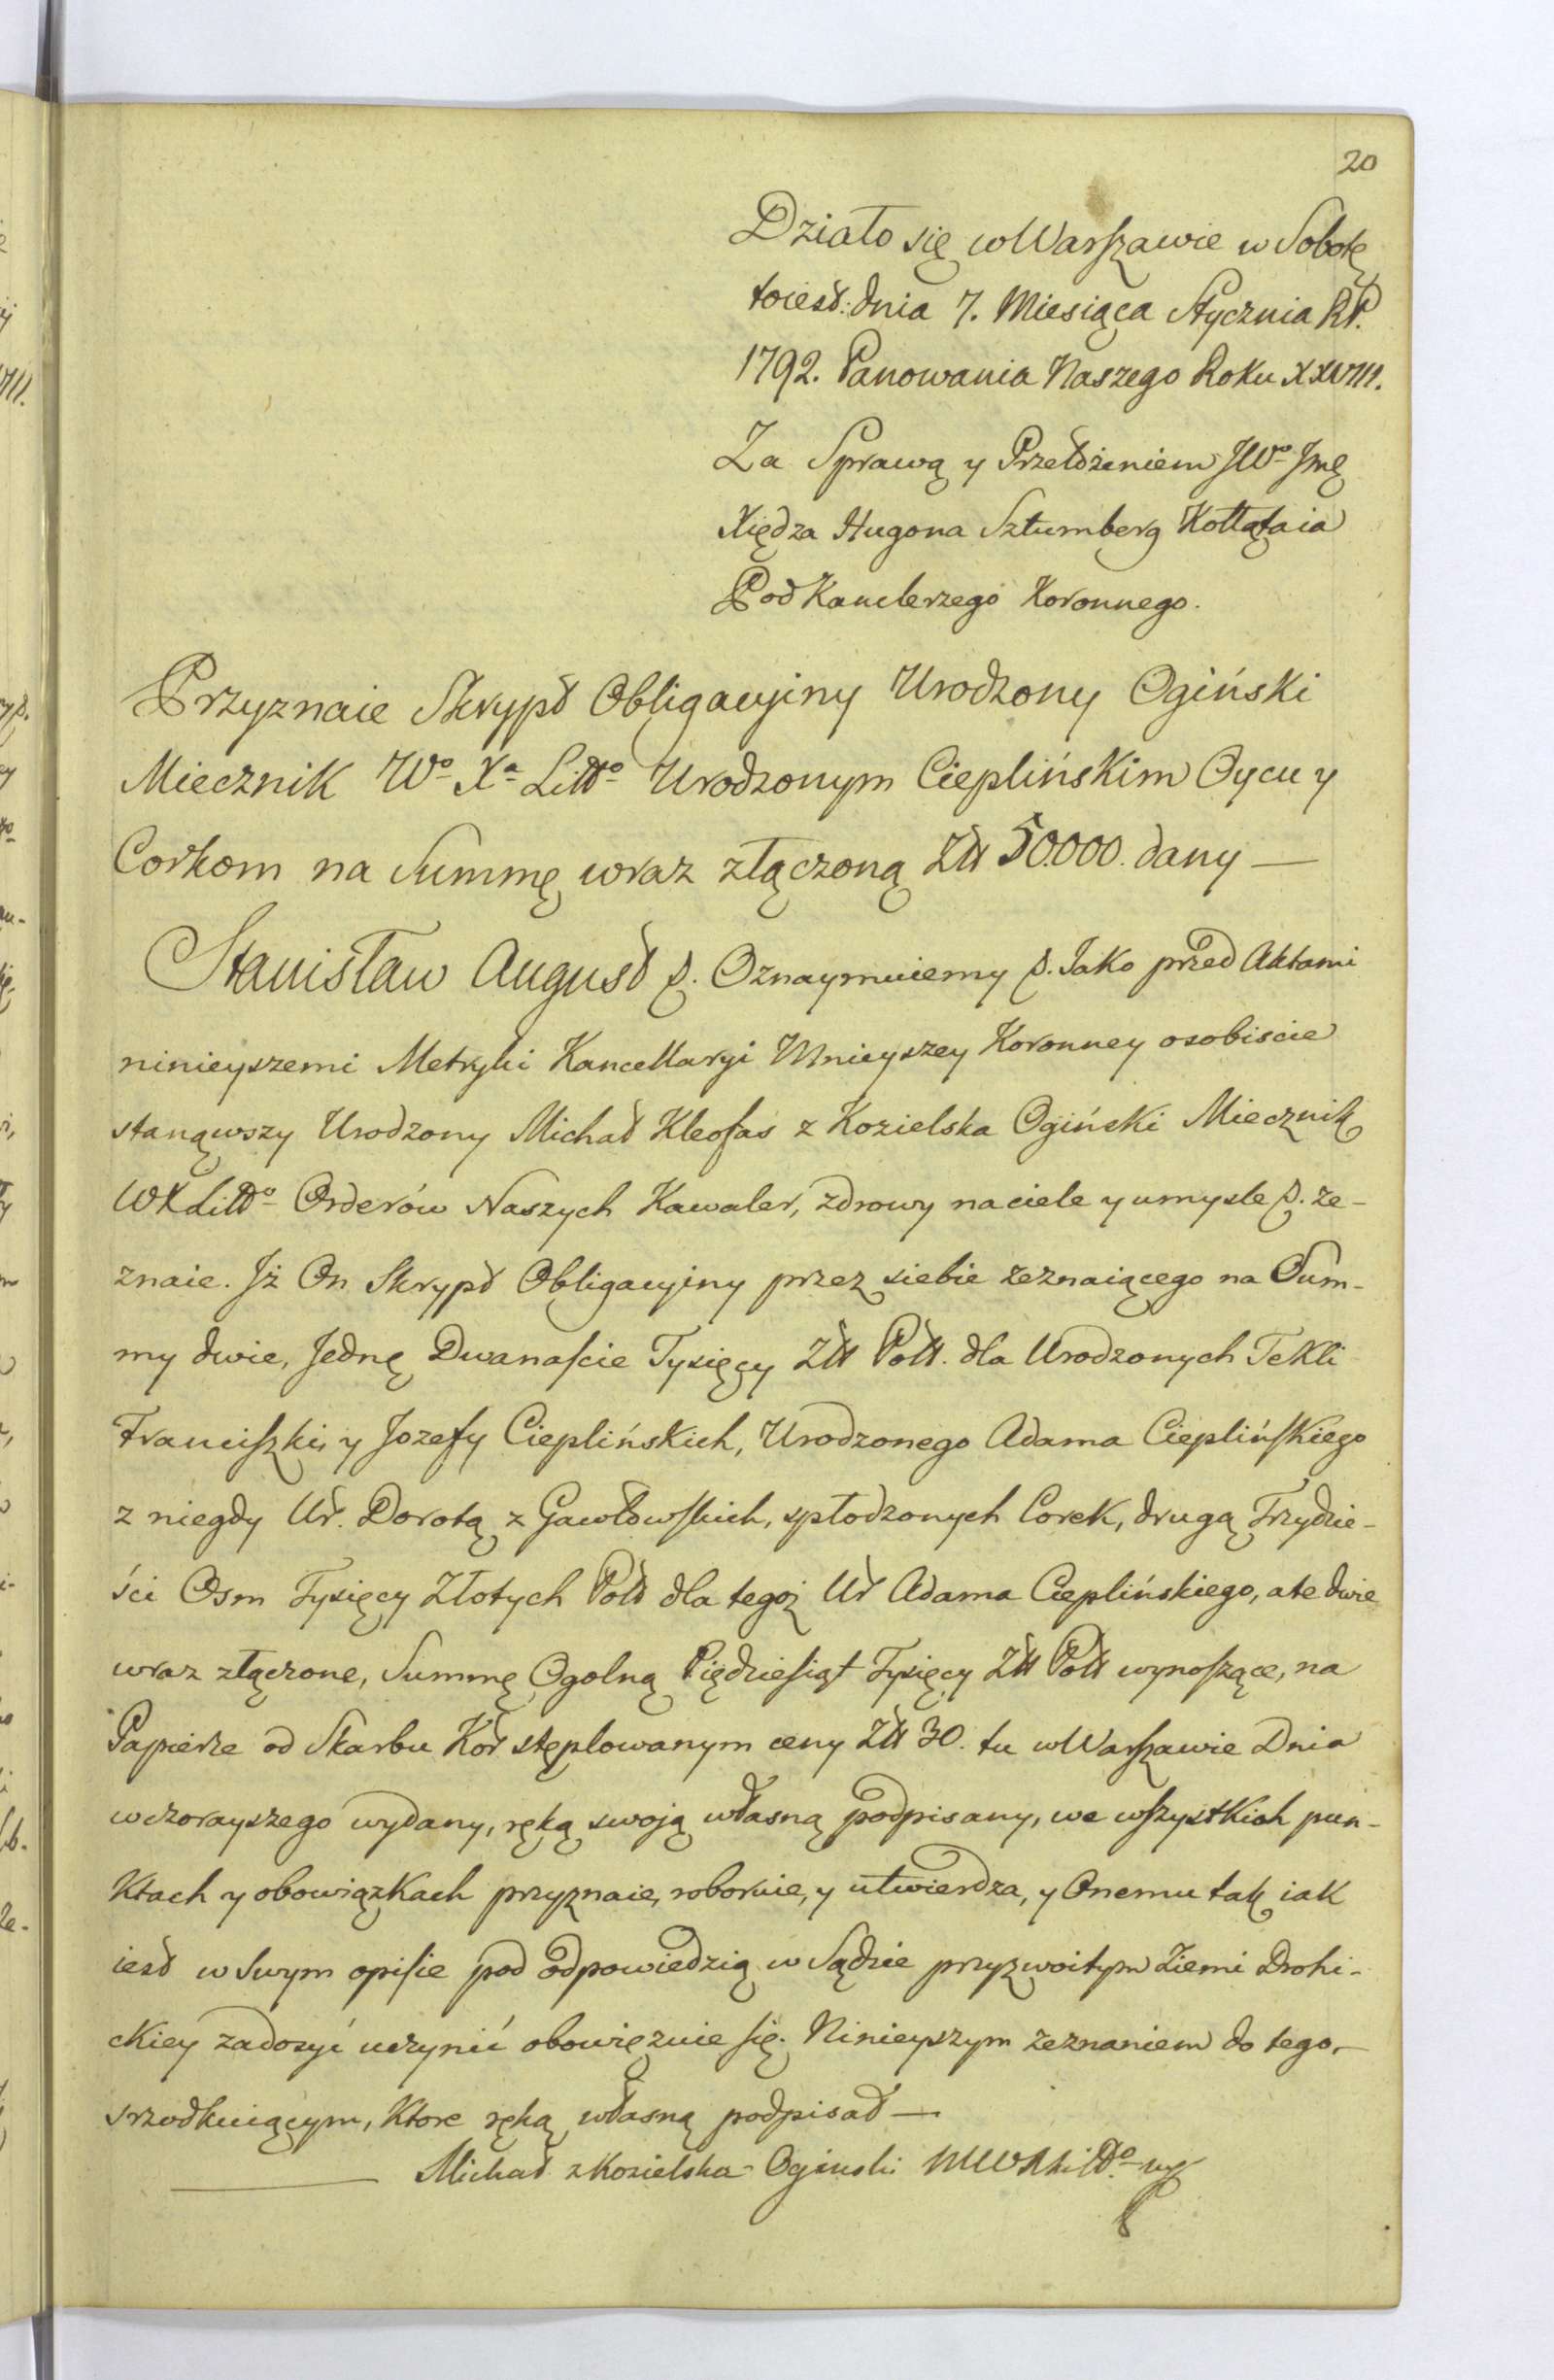 20
Działo się w Warszawie w Sobotę
toiest: dnia 7. Miesiąca Stycznia RP.
1792. Panowania Naszego Roku XXVIII.
Za Sprawą y Przełożeniem JWo Jmę
Xiędza Hugona Sztumberg Kołłątaia
Pod Kanclerzego Koronnego.
Przyznaie Skrypt Obligacyiny Urodzony Ogiński
Miecznik Wo Xa Litto Urodzonym Cieplińskim Oycu y
Corkom na Summę wraz złączoną Złł 50.000. dany —
Stanisław August p. Oznaymuiemy p. Jako przed Aktami
ninieyszemi Metryki Kancellaryi Mnieyszey Koronney osobiscie
stanąwszy Urodzony Michał Kleofas z Kozielska Ogiński Miecznik
WXLitto Orderów Naszych Kawaler, zdrowy na ciele y umysle p. ze-
znaie. Jż On Skrypt Obligacyiny przez siebie zeznaiącego na Sum-
my dwie, Jednę Dwanascie Tysięcy Złł Poll. dla Urodzonych Tekli
Franciszki, y Jozefy Cieplińskich, Urodzonego Adama Cieplińskiego
z niegdy Ur. Dorotą z Gawłowskich, spłodzonych Corek, drugą Trzydzie-
ści Osm Tysięcy Złotych Poll dla tegoż Ur Adama Cieplińskiego, a te dwie
wraz złączone, Summę Ogolną Pięćdziesiąt Tysięcy Złł Poll wynoszące, na
Papierze od Skarbu Kor stęplowanym ceny Złł 30. tu w Warszawie Dnia
wczorayszego wydany, ręką swoją własną podpisany, we wszystkich pun-
ktach y obowiązkach przyznaie, roboruie, y utwierdza, y Onemu tak iak
iest w Swym opisie pod odpowiedzią w Sądzie przyzwoitym Ziemi Drohi-
ckiey zadosyć uczynić obowięzuie się. Ninieyszym zeznaniem do tego,—
srzodkuiącym, Ktore ręką własną podpisał —
Michał z Kozielska Oginski MWXLitto